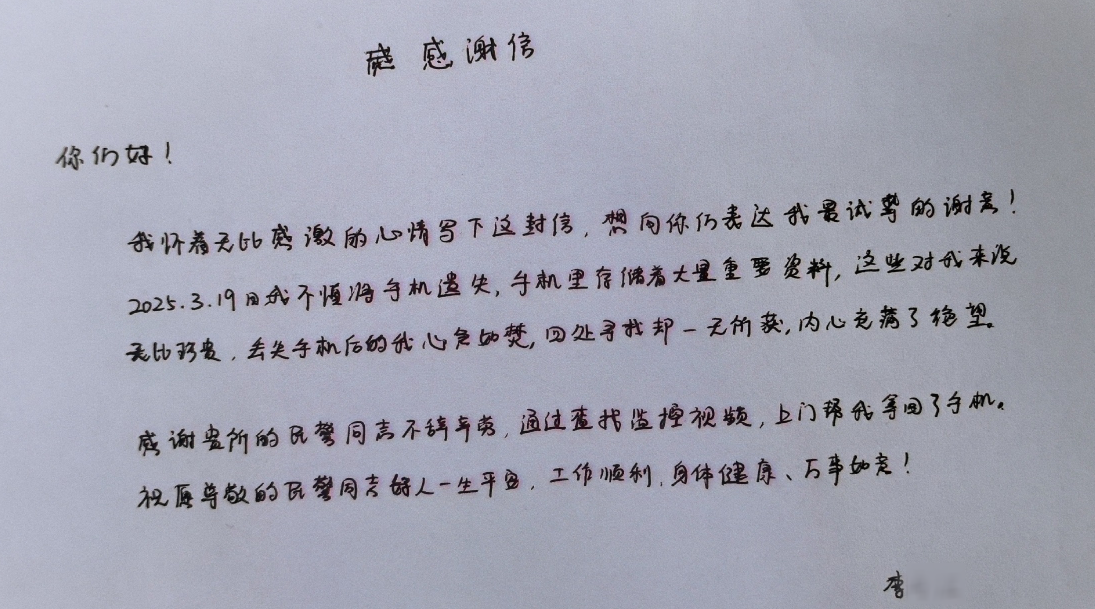 感谢信
你们好！
我怀着无比感激的心情写下这封信，想向你们表达我最诚挚的谢意！
2025.3.19日我不慎将手机遗失，手机里存储着大量重要资料，这些对我来说
无比珍贵，丢失手机后的我心急如焚，四处寻找却一无所获，内心充满了绝望。
感谢贵所的民警同志不辞辛劳，通过查找监控视频，上门帮我拿回了手机。
祝愿尊敬的民警同志好人一生平安，工作顺利，身体健康、万事如意！
李